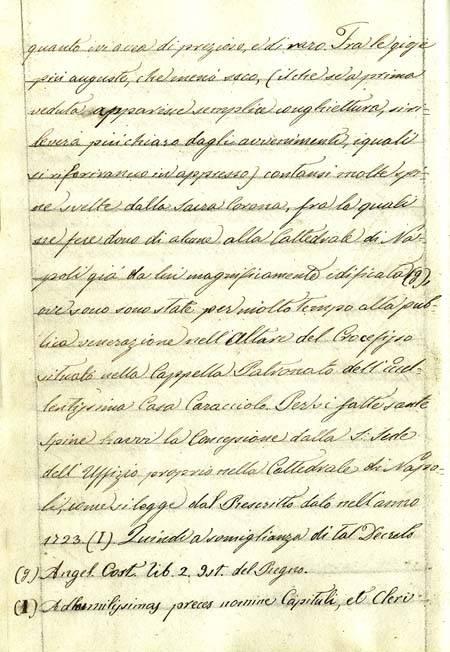 quanto ivi avea di prezioso, e di raro. Fra le gioje
più auguste, che menò seco, (il che se a prima
veduta apparisse semplice conghiettura, si ri=
leverà più chiaro dagli avvenimenti, i quali
si riferiranno in appresso) contansi molte spi=
ne svelte dalla Sacra Corona, fra le quali
ne fece dono di alcune alla Cattedrale di Na=
poli già da lui magnificamente edificata (g),
ove sono state per molto tempo alla pub=
blica venerazione nell'Altare del Crocefisso
situato nella Cappella Patronato dell'Eccel=
lentissima Casa Caracciolo. Per sì fatte sante
Spine havvi la Concessione dalla S. Sede
dell'Uffizio proprio nella Cattedrale di Napo=
li, come si legge dal Rescritto dato nell'anno
1723. (1) Quindi a somiglianza di tal Decreto
(g) Angel. Cost. lib. 2. Ist. del Regno.
(1) Ad humilissimas preces nomine Capituli, et Cleri=